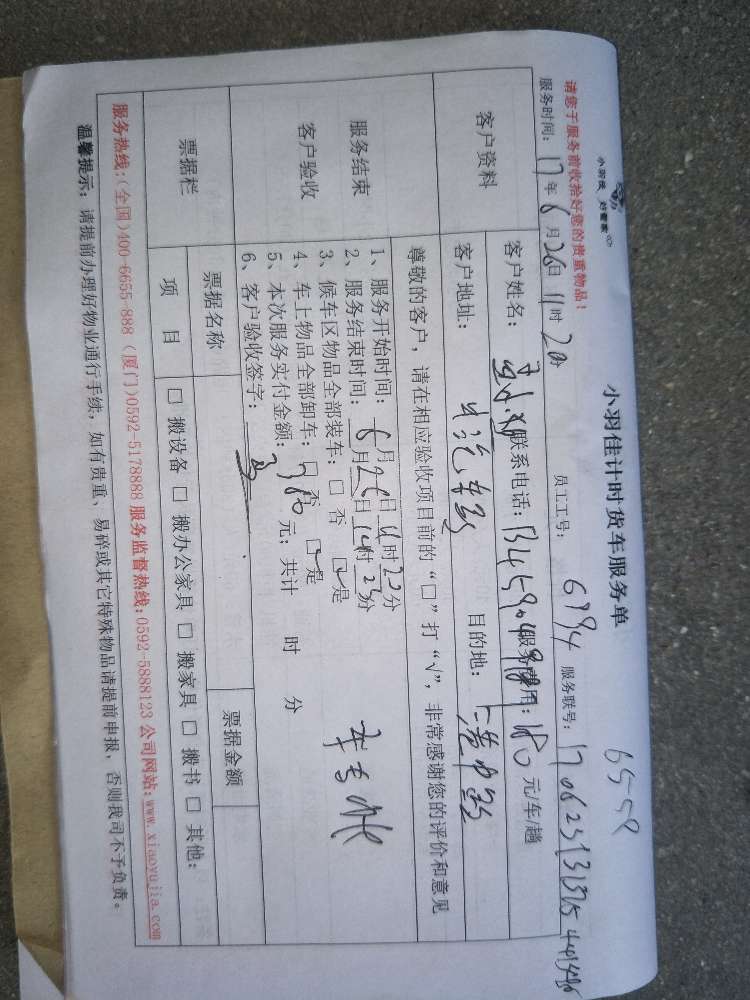 小羽佳 好管家
小羽佳计时货车服务单
6559
请您于服务前收拾好您的贵重物品!
服务时间: 17年6月26日11时20分 员工工号: 6794 服务联号:
客户资料
客户姓名: 联系电话: 服务费用: 180元/车/趟
客户地址: 目的地:
尊敬的客户,请在相应验收项目前的“□”打“√”,非常感谢您的评价和意见
服务结束
客户验收
1、服务开始时间: 6月26日 时22分
2、服务结束时间: 月 日14时23分
3、候车区物品全部装车: □ 否 □ 是
4、车上物品全部卸车: □ 否 □ 是
5、本次服务实付金额: 元; 共计 时 分
6、客户验收签字:
票据栏
票据名称 票据金额
项 目 □ 搬设备 □ 搬办公家具 □ 搬家具 □ 搬书 □ 其他:
服务热线:(全国)400-6655-888 (厦门)0592-5178888 服务监督热线:0592-5888123 公司网站:www.xiaoyujia.com
温馨提示: 请提前办理好物业通行手续,如有贵重、易碎或其它特殊物品请提前申报,否则我司不予负责。